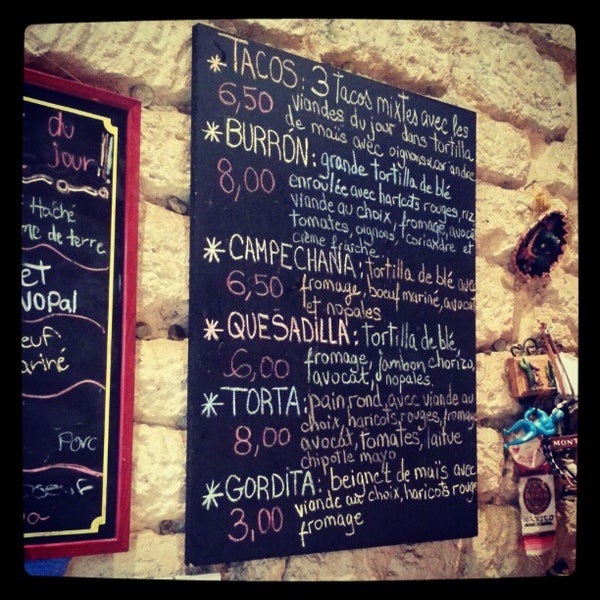 du
jour
Haché
de terre
et
nopal
Porc
* TACOS: 3 tacos mixtes avec les
6,50 viandes du jour dans tortilla
de maïs avec oignons
* BURRÓN: grande tortilla de blé
8,00 enroulée avec haricots rouges, riz
viande au choix, fromage, avocat
tomates, oignons, coriandre et
crème fraiche
* CAMPECHANA: tortilla de blé avec
6,50 fromage, boeuf mariné, avocat
et nopales
* QUESADILLA: tortilla de blé,
6,00 fromage, jambon chorizo,
avocat, nopales.
* TORTA: pain rond, avec viande au
8,00 choix, haricots rouges, fromage
avocat, tomates, laitue
chipotle mayo
* GORDITA: beignet de maïs avec
3,00 viande au choix, haricots rouge
fromage
MONT